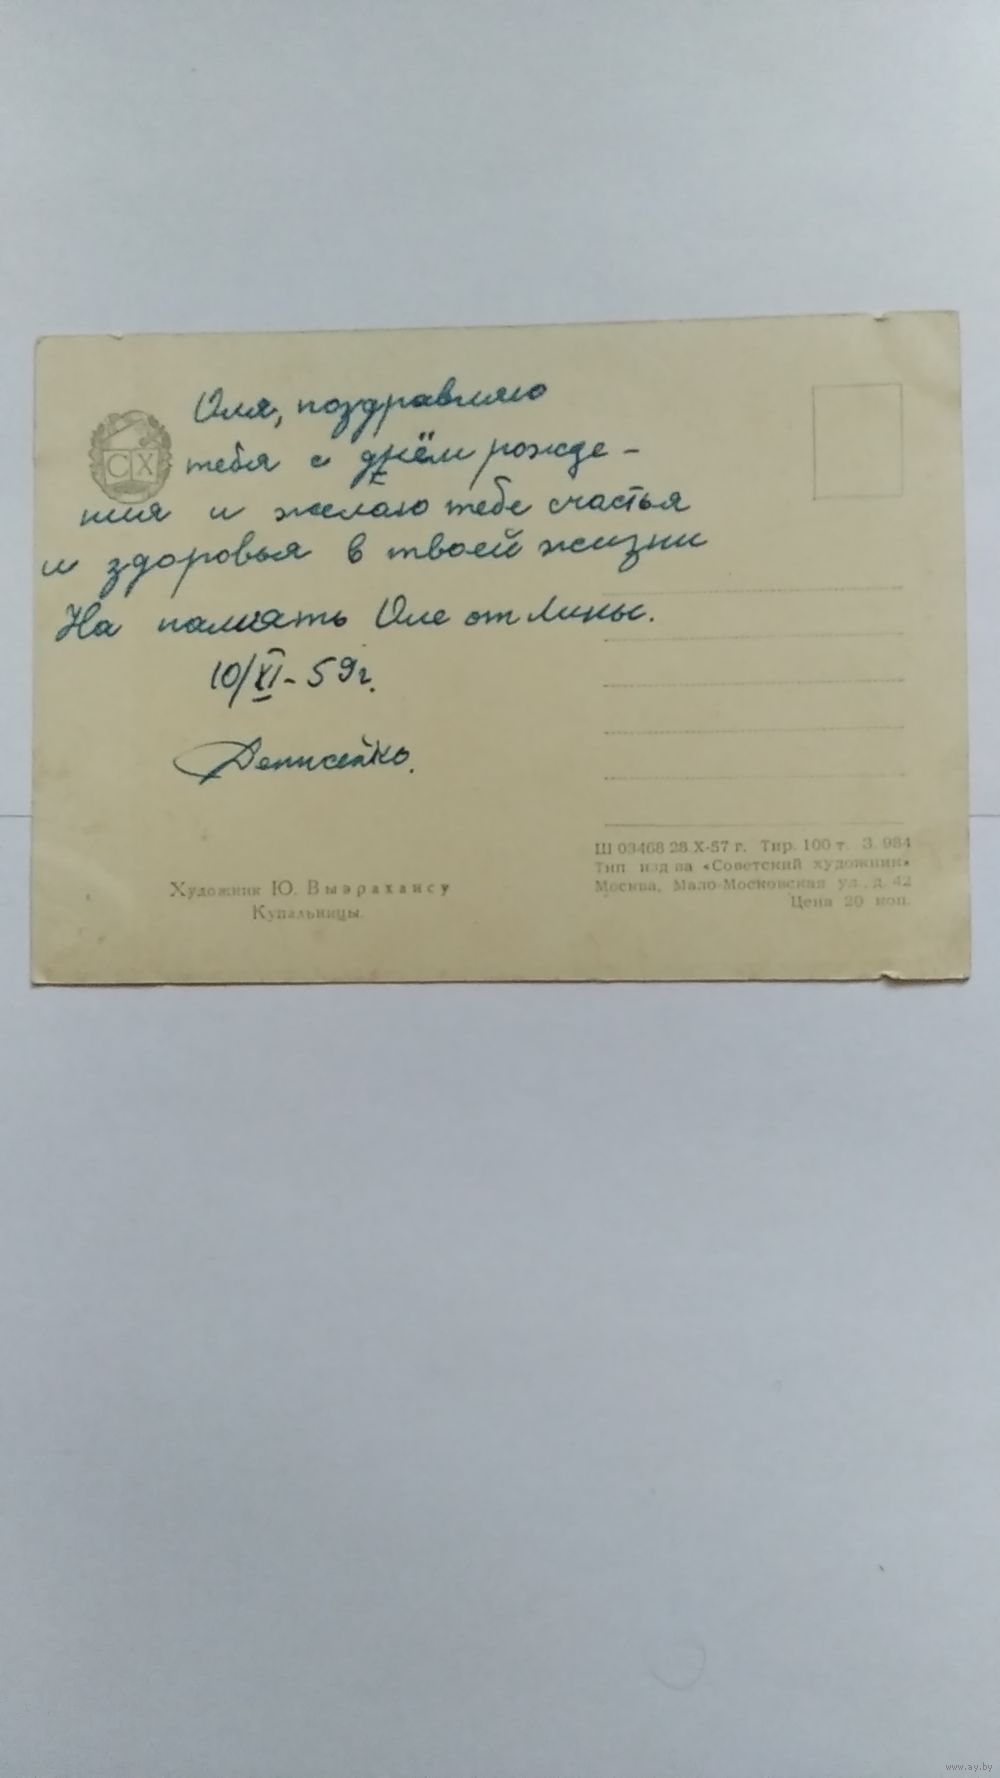 Оля, поздравляю
тебя с днём рожде-
ния и желаю тебе счастья
и здоровья в твоей жизни
На память Оле от Лины.
10/XI-59г.
Денисейко.
СХ
Художник Ю. Выэрахансу
Купальницы.
Ш 03468 28.X-57 г. Тир. 100 т. З. 984
Тип. изд-ва «Советский художник»
Москва, Мало-Московская ул., д. 42
Цена 20 коп.
www.ay.by